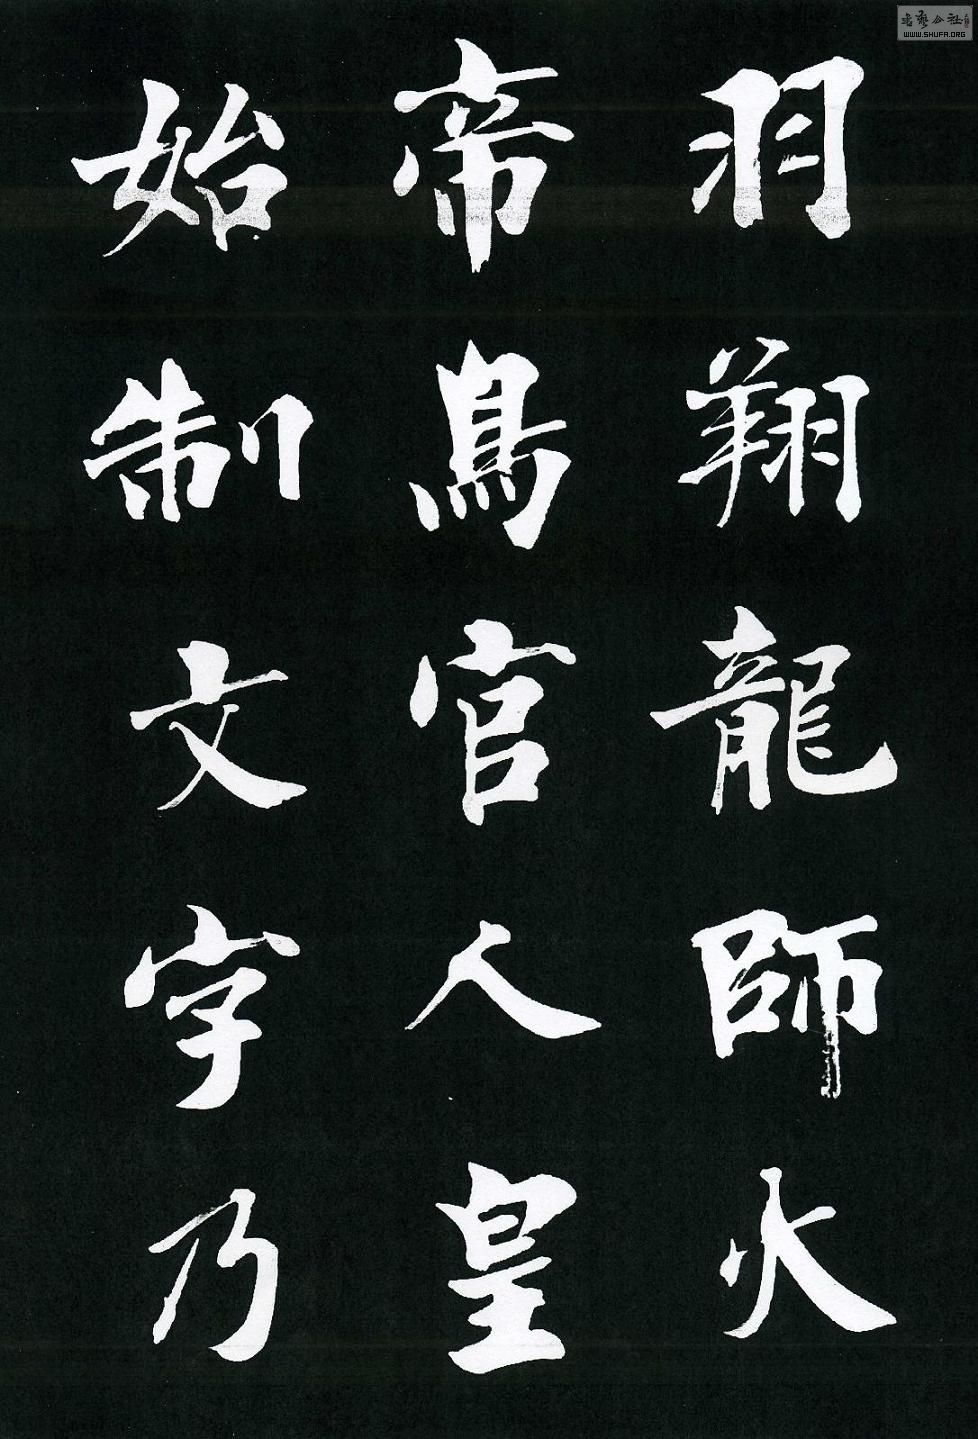 羽翔龍師火
帝鳥官人皇
始制文字乃
WWW.SHUFA.ORG